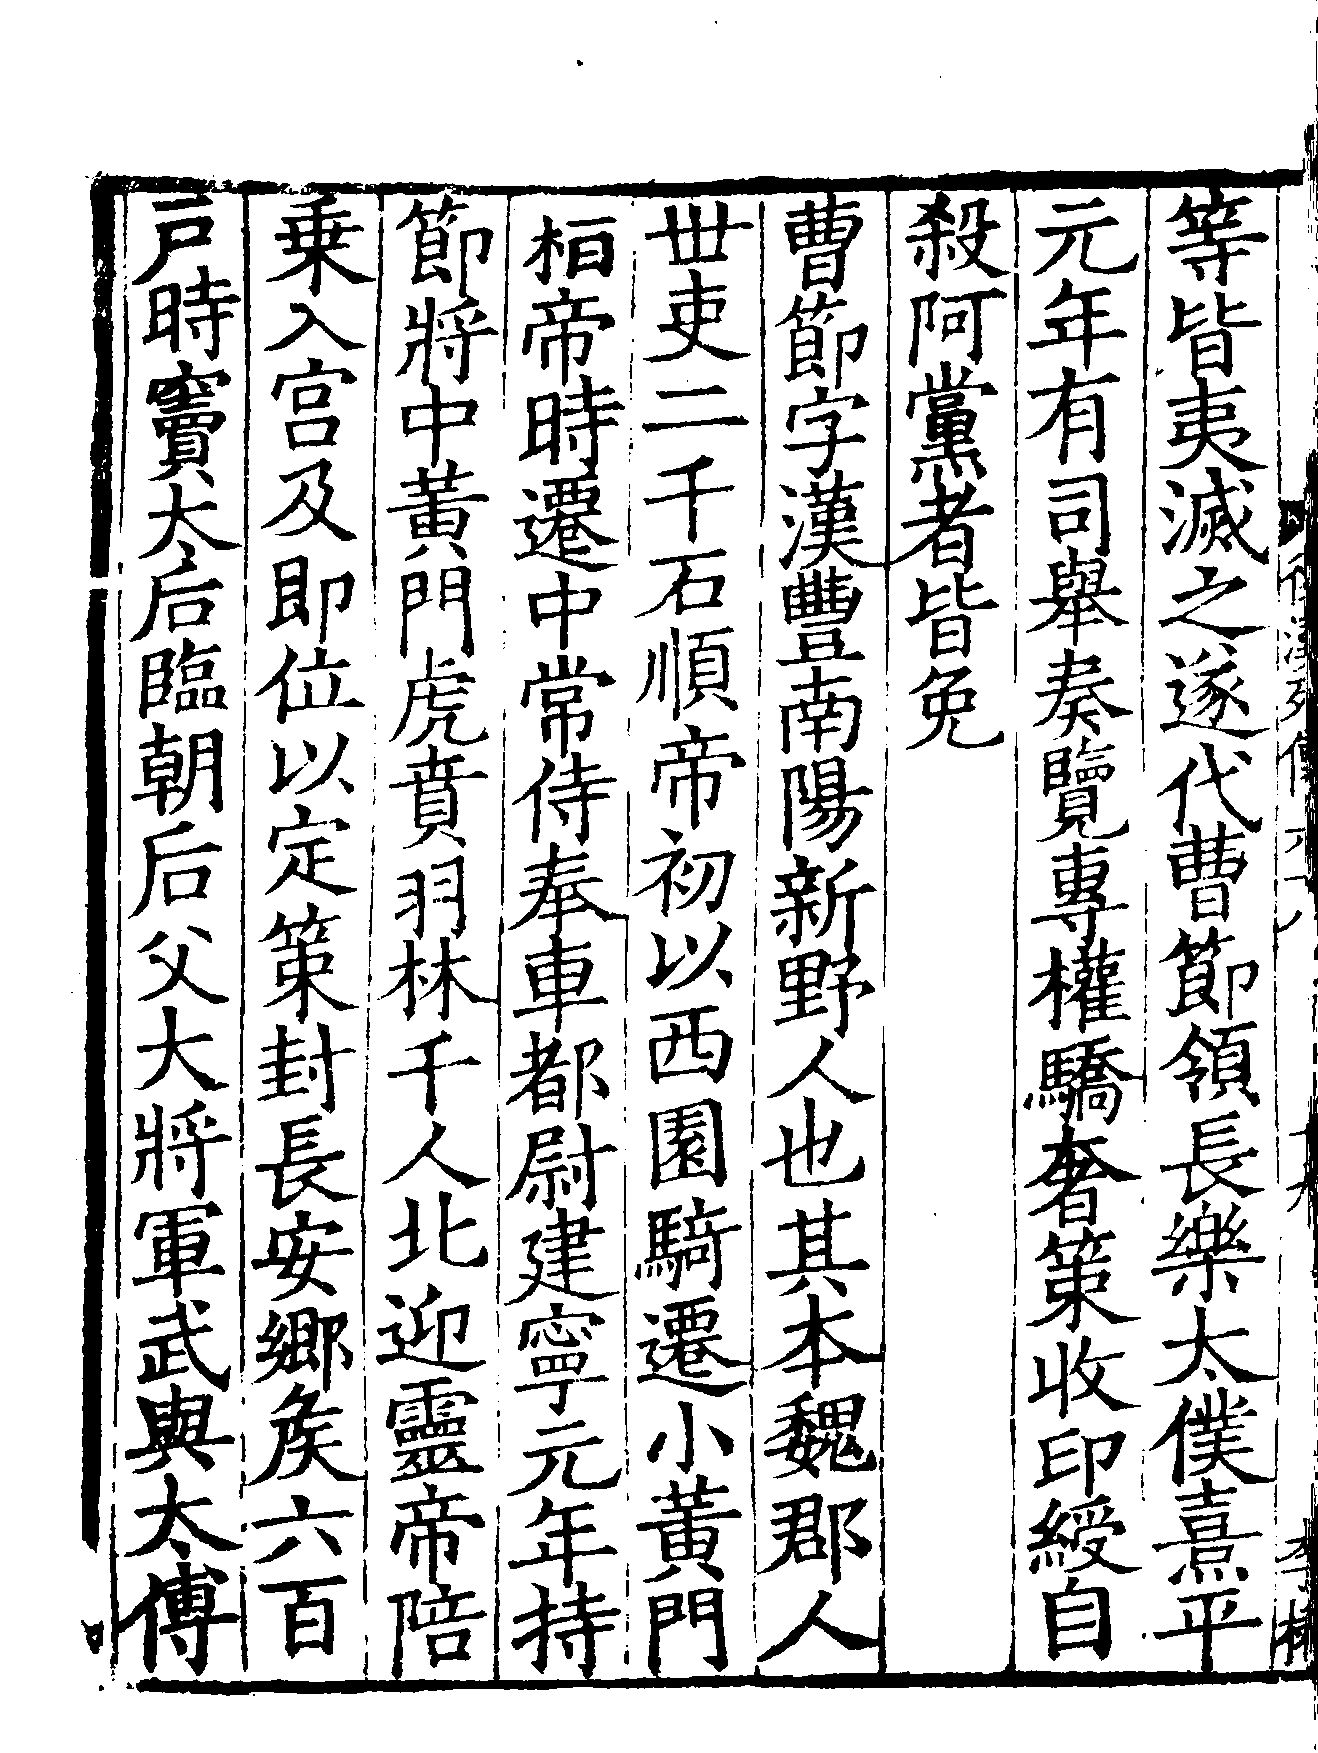 等皆夷滅之遂代曹節領長樂太僕熹平
元年有司舉奏覽專權驕奢策收印綬自
殺阿黨者皆免
曹節字漢豐南陽新野人也其本魏郡人
丗吏二千石順帝初以西園騎遷小黃門
桓帝時遷中常侍奉車都尉建寧元年持
節將中黃門虎賁羽林千人北迎靈帝陪
乗入宮及即位以定策封長安鄉矦六百
戸時竇太后臨朝后父大將軍武與太傅